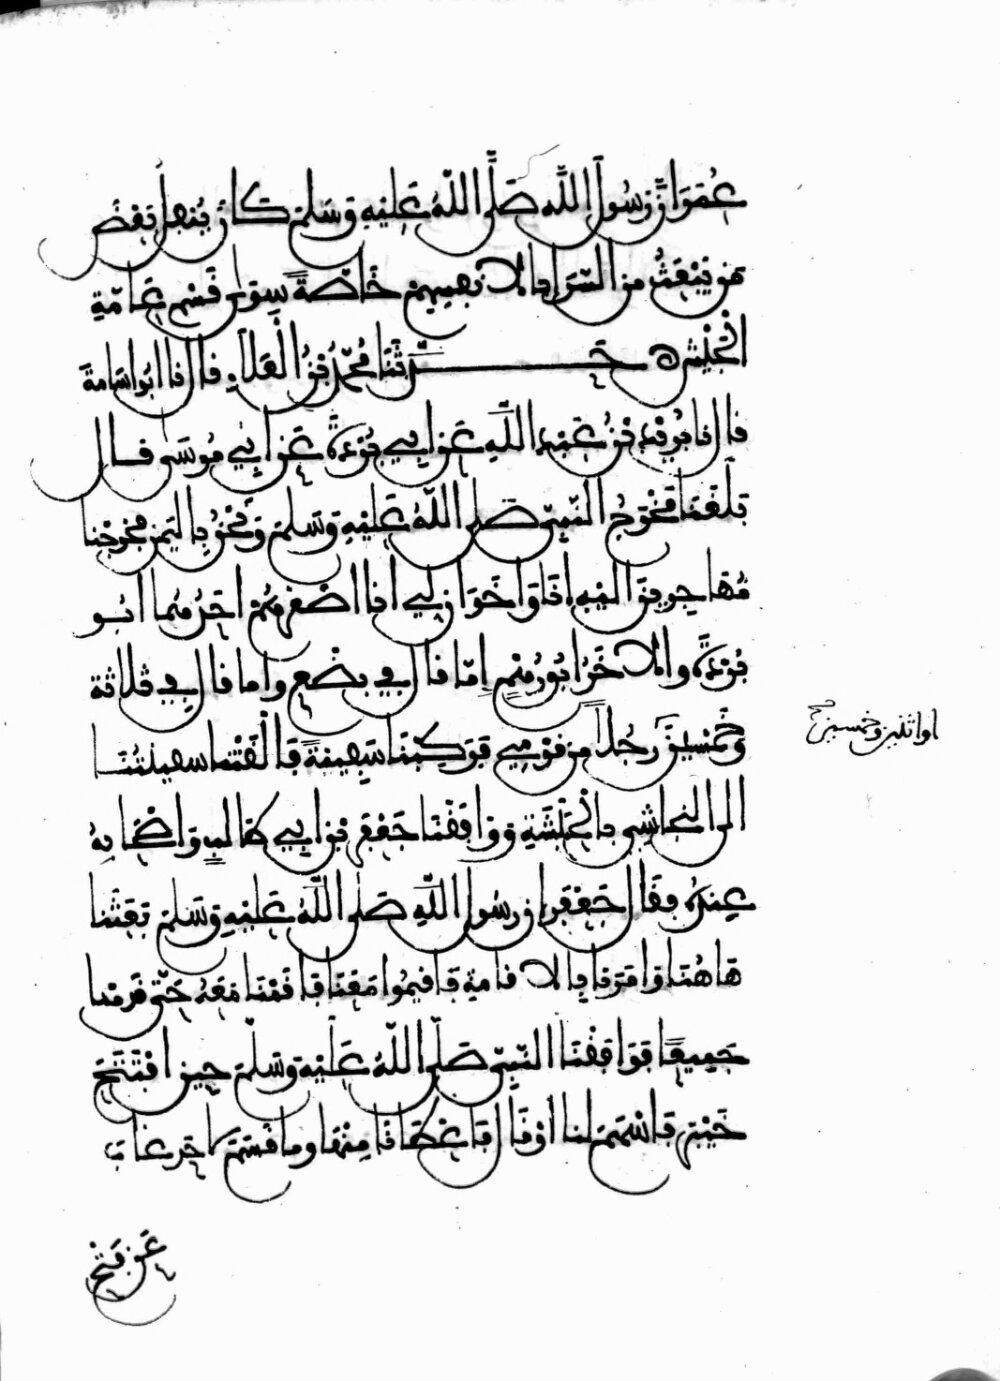 عُمَرَ أَنَّ رَسُولَ اللَّهِ صَلَّى اللَّهُ عَلَيْهِ وَسَلَّمَ كَانَ يُنَفِّلُ بَعْضَ
مَن يَبْعَثُ مِنَ السَّرَايَا لِأَنفُسِهِمْ خَاصَّةً سِوَى قَسْمِ عَامَّةِ
الْجَيْشِ ه حَدَّثَنَا مُحَمَّدُ بْنُ الْعَلَاءِ قال نا أَبُو أُسَامَةَ
قال نا بُرَيْدُ بْنُ عَبْدِ اللَّهِ عَنْ أَبِي بُرْدَةَ عَنْ أَبِي مُوسَى قال
بَلَغَنَا مَخْرَجُ النَّبِيِّ صَلَّى اللَّهُ عَلَيْهِ وَسَلَّمَ وَنَحْنُ بِالْيَمَنِ فَخَرَجْنَا
مُهَاجِرِينَ إِلَيْهِ أَنَا وَأَخَوَانِ لِي أَنَا أَصْغَرُهُمْ أَحَدُهُمَا أَبُو
بُرْدَةَ وَالْآخَرُ أَبُو رُهْمٍ إِمَّا قَالَ فِي بِضْعٍ وَإِمَّا قَالَ فِي ثَلَاثَةٍ
وَخَمْسِينَ رَجُلًا مِنْ قَوْمِي فَرَكِبْنَا سَفِينَةً فَأَلْقَتْنَا سَفِينَتُنَا
إِلَى النَّجَاشِيِّ بِالْحَبَشَةِ وَوَافَقْنَا جَعْفَرَ بْنَ أَبِي طَالِبٍ وَأَصْحَابَهُ
عِنْدَهُ فَقَالَ جَعْفَرٌ إِنَّ رَسُولَ اللَّهِ صَلَّى اللَّهُ عَلَيْهِ وَسَلَّمَ بَعَثَنَا
هَاهُنَا وَأَمَرَنَا بِالْإِقَامَةِ فَأَقِيمُوا مَعَنَا فَأَقَمْنَا مَعَهُ حَتَّى قَدِمْنَا
جَمِيعًا فَوَافَقْنَا النَّبِيَّ صَلَّى اللَّهُ عَلَيْهِ وَسَلَّمَ حِينَ افْتَتَحَ
خَيْبَرَ فَأَسْهَمَ لَنَا أَوْ قَالَ فَأَعْطَانَا مِنْهَا وَمَا قَسَمَ لِأَحَدٍ غَابَ
عَنْ فَتْحِ
او اثنين وخمسين